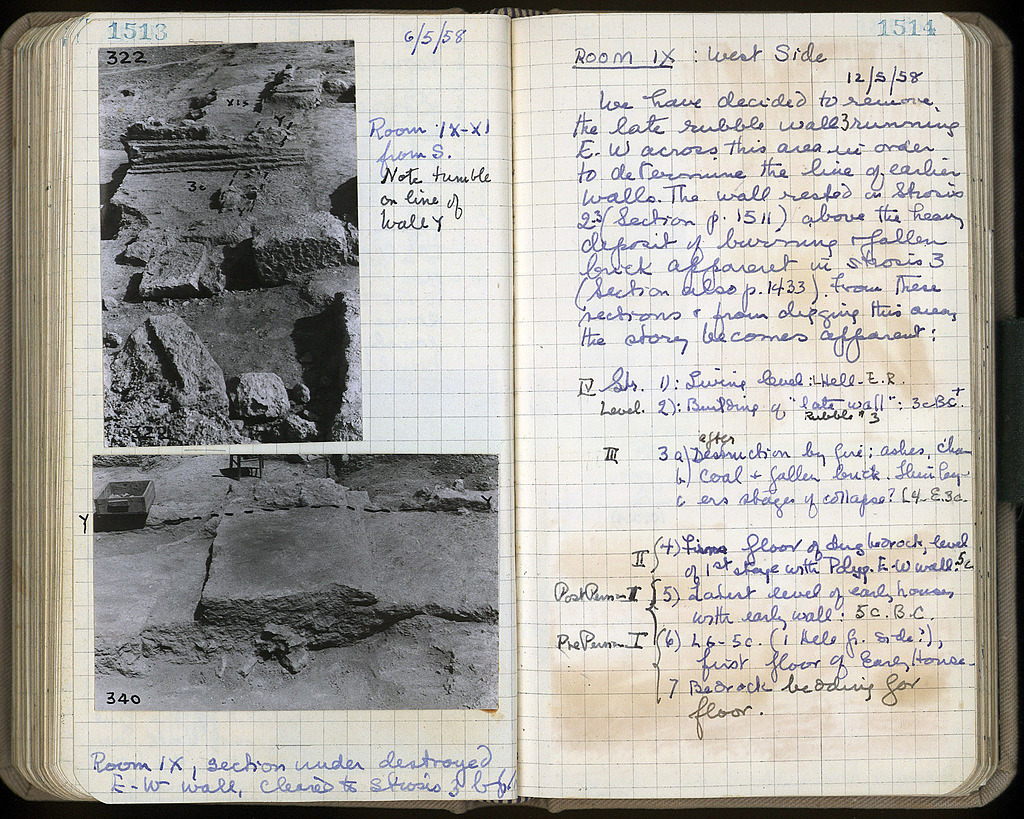 1513
6/5/58
322
XIs
Y
3c
Room IX-XI
from S.
Note tumble
on line of
Wall Y
Y
Y
340
Room IX, section under destroyed
E-W wall, cleared to Strosis 3 b
1514
ROOM IX : West Side
12/5/58
We have decided to remove
the late rubble wall 3 running
E-W across this area in order
to determine the line of earlier
walls. The wall rested in Strosis
2 (Section p. 1511) above the heavy
deposit of burning + fallen
brick apparent in strosis 3
(Section also p. 1433). From these
sections + from digging this area,
the story becomes apparent:
IV Str. 1): Living level: Hell-E.R.
Level. 2): Building of "late wall": 3c BC
Rubble 3
after
III 3 a) Destruction by fire; ashes, char
b) coal + fallen brick. Their lay-
c ers stages of collapse? L4-E.3c.
II (4) floor of dug bedrock, level
of 1st stage with Polyg. E-W wall. 5c
Post Persian II (5) Latest level of early houses
with early wall: 5c. B.C.
Pre Persian I (6) L6-5c. (1 Hell fr. side?),
first floor of Early House-
7 Bedrock bedding for
floor.